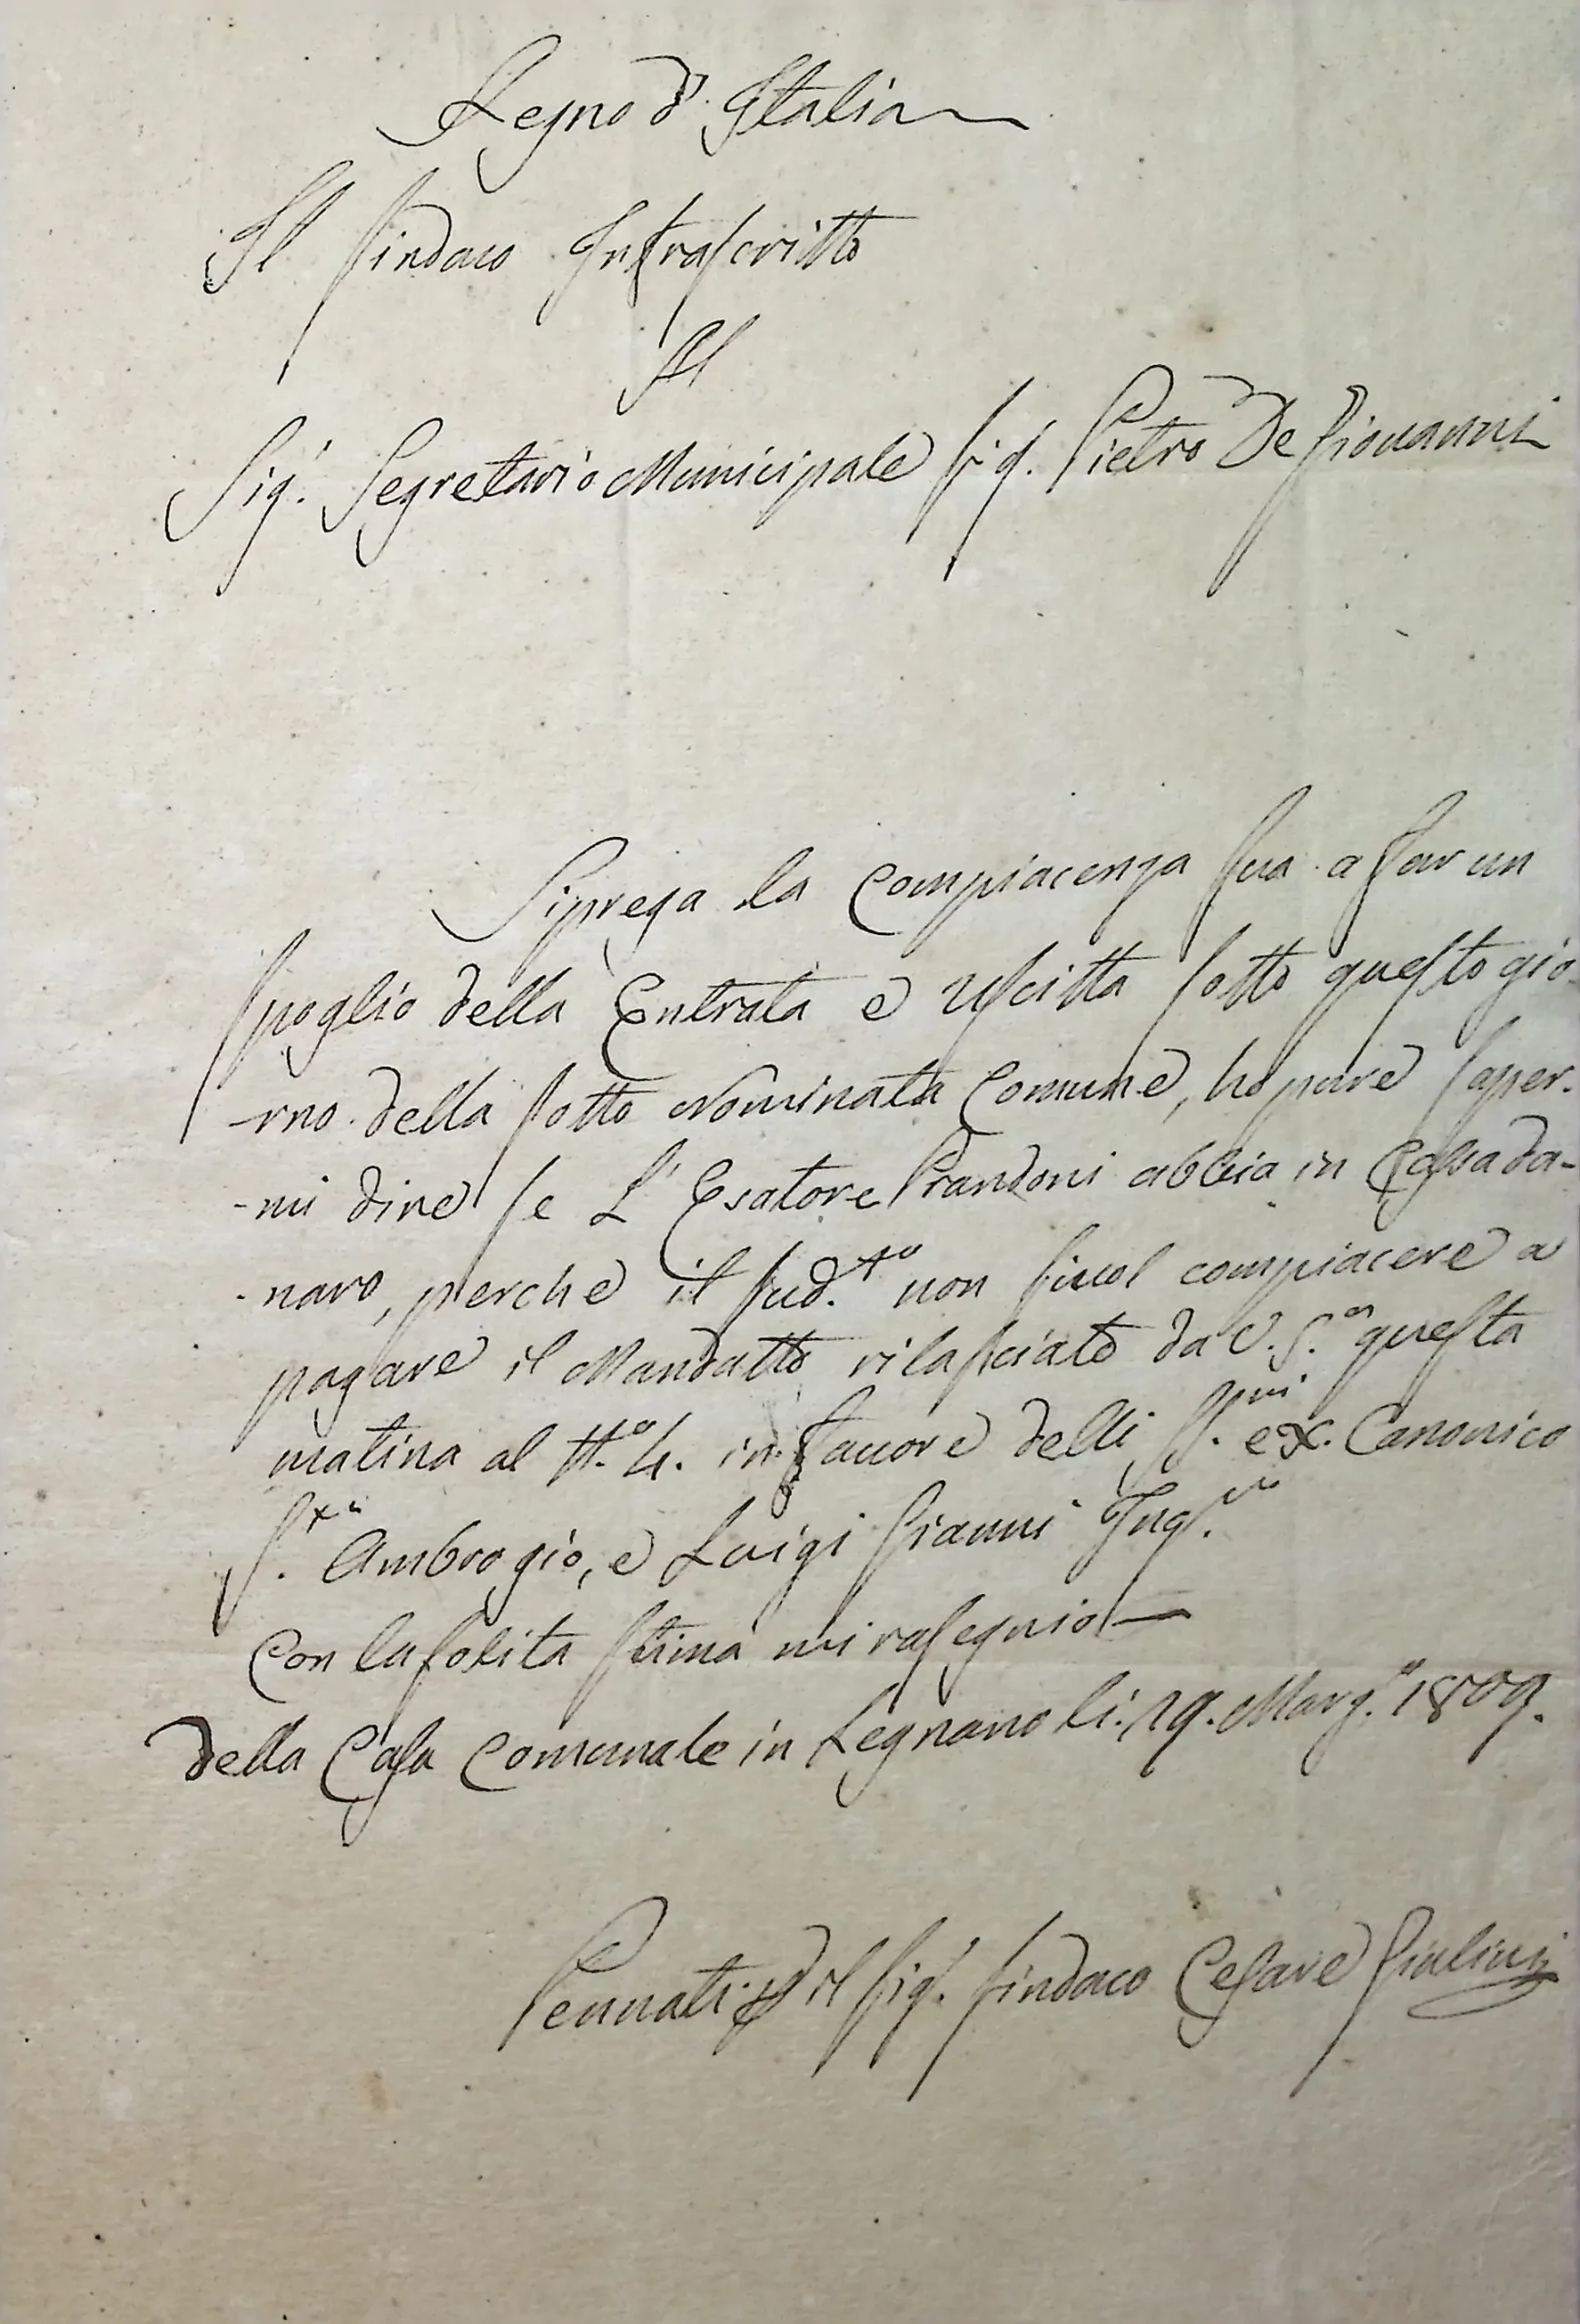 Regno d'Italia
Il Sindaco Infrascritto
Al
Sig.r Segretario Municipale Sig. Pietro De Giovanni
Si prega la Compiacenza Sua a far un
spoglio della Entrata e Uscitta sotto questo gio-
-rno della sotto Nominata Comune, ho pure saper-
-mi dire se L'Esatore Prandoni abbia in Cassa da-
-naro, perche il sud.to non si vuol compiacere a
pagare il Mandatto rilasciato da V.S.a questa
matina al N.o 4. in favore delli SS.ri ex. Canonico
Ambrogio, e Luigi Gianni
Con la solita stima mi rasegnio
della Casa Comunale in Legnano li. 19. Marz.o 1809.
Pennati p il Sig.r Sindaco Cesare Giulini